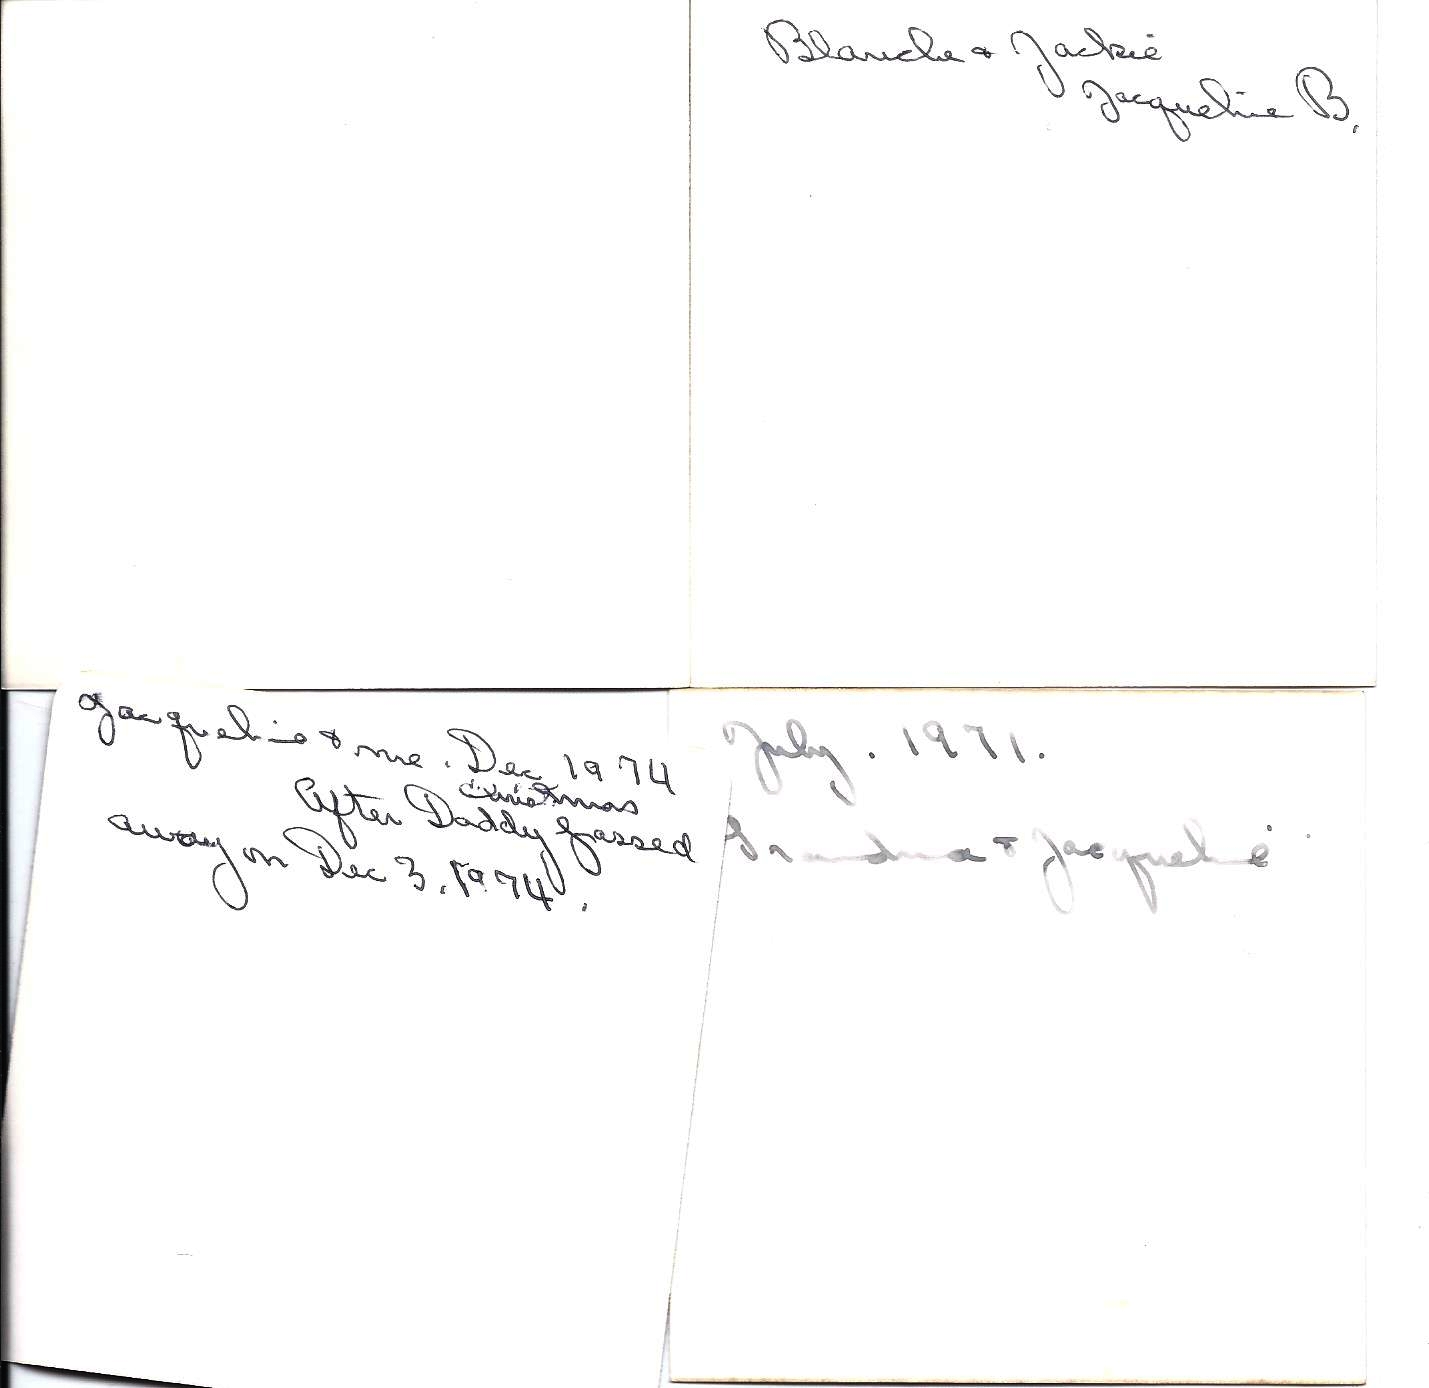 Blanche & Jackie
Jacqueline B.
Jacqueline & me. Dec 1974
Christmas
After Daddy passed
away on Dec 3, 1974.
July. 1971.
Grandma & Jacqueline